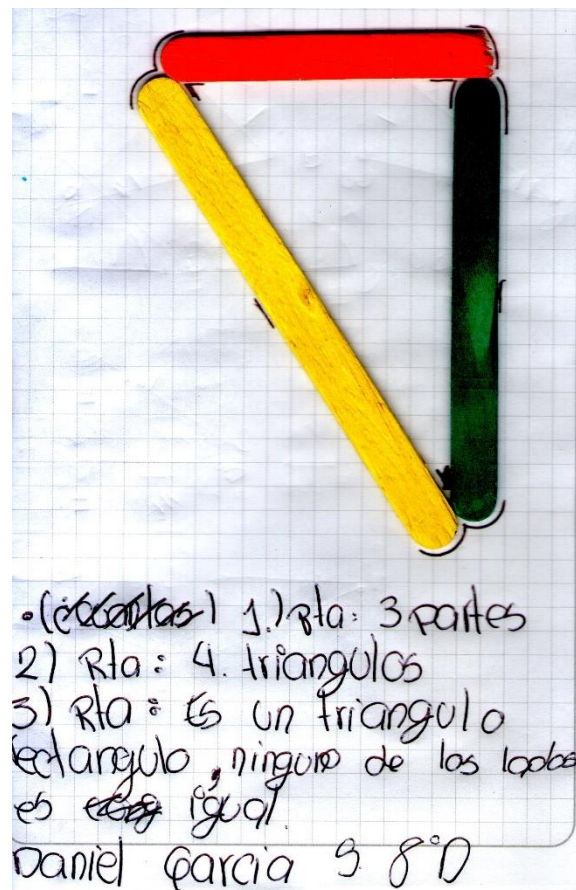 1.) Rta: 3 partes
2) Rta: 4. triangulos
3) Rta: Es un triangulo
rectangulo, ninguno de los lados
es igual.
Daniel Garcia S. 8°D